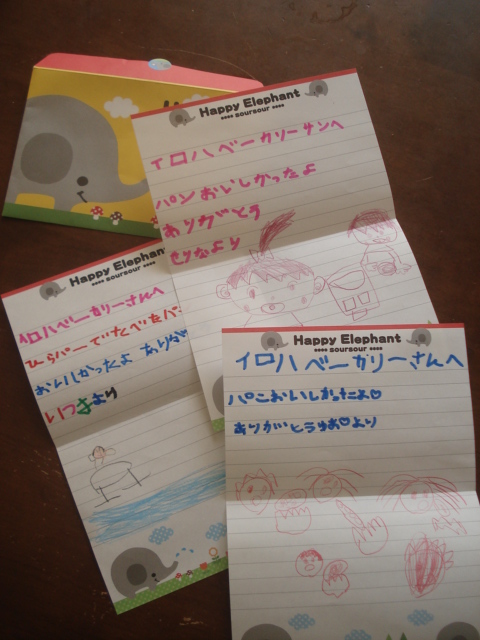 Happy Elephant
soursour
イロハベーカリーサンへ
パンおいしかったよ
ありがとう
せりなより
Happy Elephant
soursour
イロハベーカリーさんへ
ひらパーでたべたパ
おいしかったよ ありが
より
Happy Elephant
soursour
イロハベーカリーさんへ
パンおいしかったよ♡
ありがとうゆあ♡より